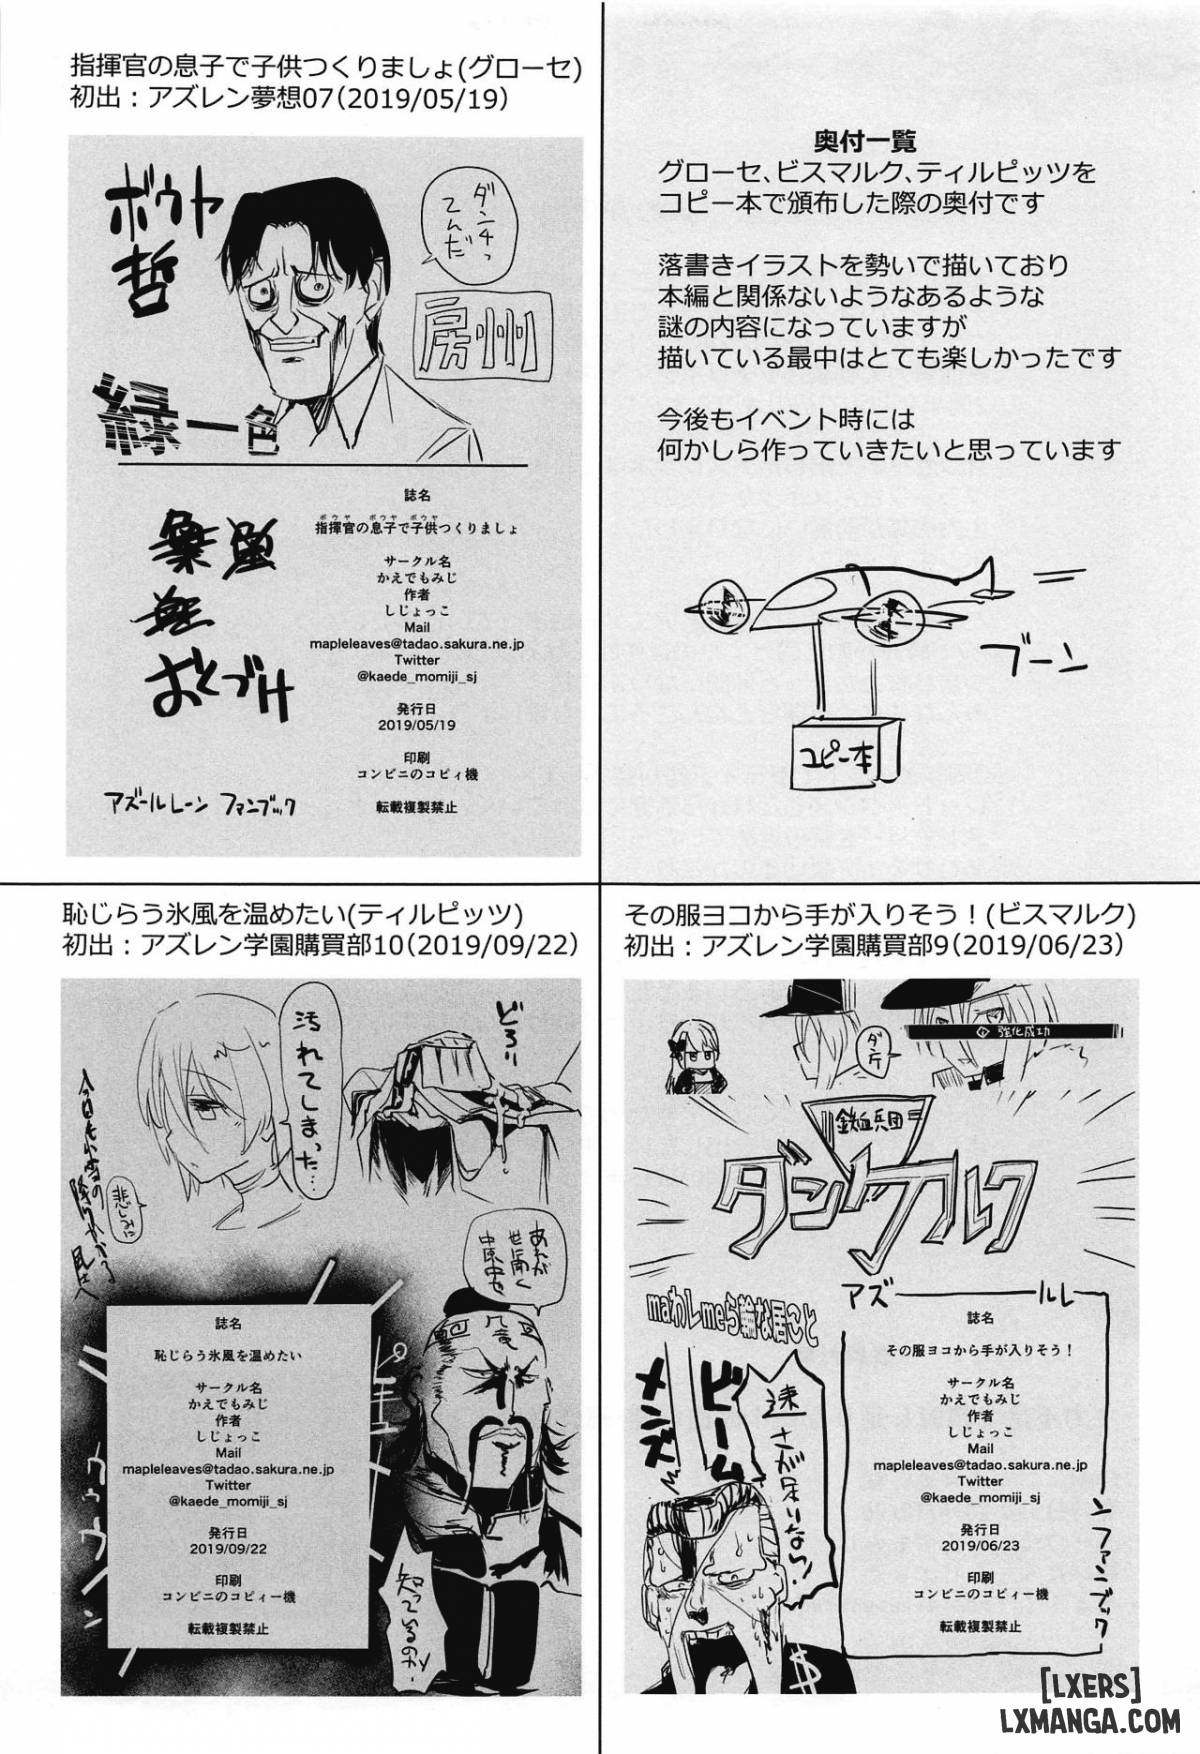 指揮官の息子で子供つくりましょ(グローセ)
初出：アズレン夢想07(2019/05/19)
ボウヤ
哲
ダンチっ
てんだ
房州
緑一色
おくづけ
アズールレーン ファンブック
誌名
ボウヤ ボウヤ ボウヤ
指揮官の息子で子供つくりましょ
サークル名
かえでもみじ
作者
しじょっこ
Mail
mapleleaves@tadao.sakura.ne.jp
Twitter
@kaede_momiji_sj
発行日
2019/05/19
印刷
コンビニのコピィ機
転載複製禁止
奥付一覧
グローセ、ビスマルク、ティルピッツを
コピー本で頒布した際の奥付です
落書きイラストを勢いで描いており
本編と関係ないようなあるような
謎の内容になっていますが
描いている最中はとても楽しかったです
今後もイベント時には
何かしら作っていきたいと思っています
ブーン
コピー本
恥じらう氷風を温めたい(ティルピッツ)
初出：アズレン学園購買部10(2019/09/22)
どろり
汚れて
しまった…
悲しみに
今日も小雪の
降りかかる
あれが
世に聞く
中原中也
知っているのか
誌名
恥じらう氷風を温めたい
サークル名
かえでもみじ
作者
しじょっこ
Mail
mapleleaves@tadao.sakura.ne.jp
Twitter
@kaede_momiji_sj
発行日
2019/09/22
印刷
コンビニのコピィー機
転載複製禁止
その服ヨコから手が入りそう！(ビスマルク)
初出：アズレン学園購買部9(2019/06/23)
強化成功
ダンケ
鉄血兵団
ダンケルク
アズールレーンファンブック
maわレmeら輪な居こと
メンズ
ビーム
速
さが足りない!
誌名
その服ヨコから手が入りそう！
サークル名
かえでもみじ
作者
しじょっこ
Mail
mapleleaves@tadao.sakura.ne.jp
Twitter
@kaede_momiji_sj
発行日
2019/06/23
印刷
コンビニのコピィー機
転載複製禁止
[LXERS]
LXMANGA.COM